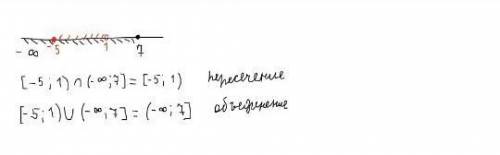 -∞ -5 1 7
[-5; 1) ∩ (-∞; 7] = [-5; 1) пересечение
[-5; 1) ∪ (-∞; 7] = (-∞; 7] объединение